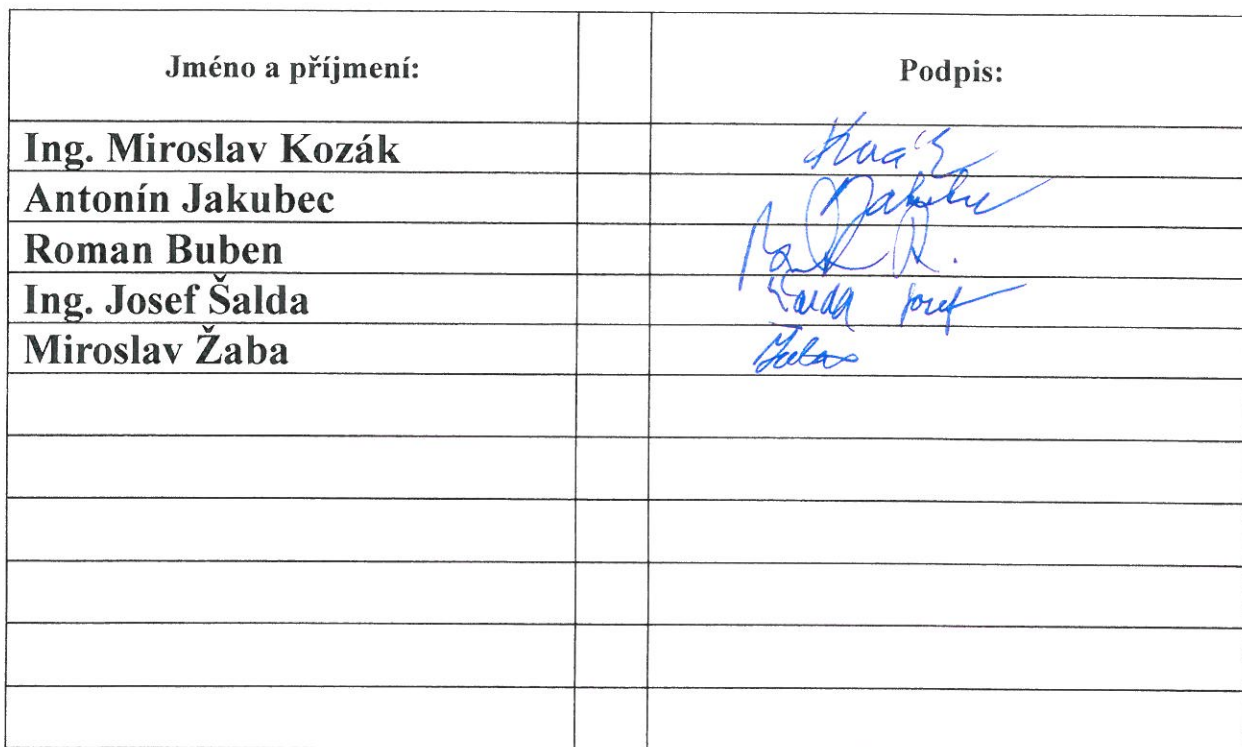 Jméno a příjmení: Podpis:
Ing. Miroslav Kozák
Antonín Jakubec
Roman Buben
Ing. Josef Šalda Šalda Josef
Miroslav Žaba